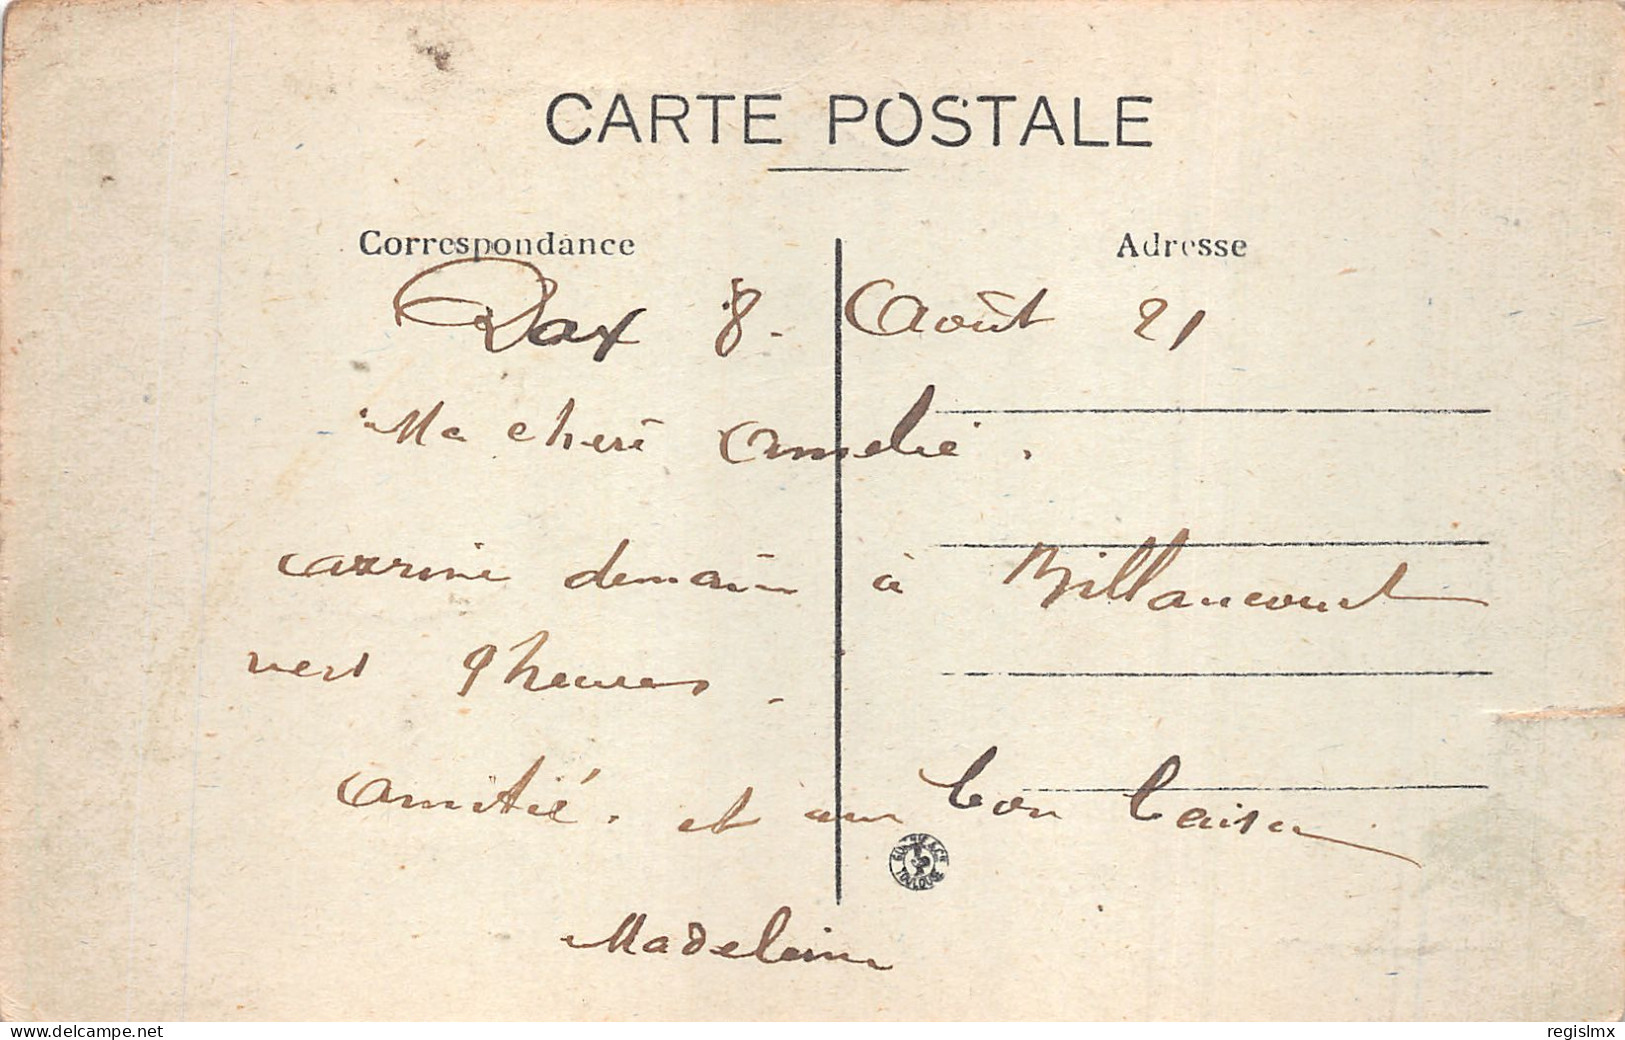 CARTE POSTALE
Correspondance
Adresse
Dax 8. Août 21
Ma cheré Amelie.
arrive demain à Billancourt
vers 9 heures.
Amitié. et un bon baiser
Madeleine
TOULOUSE
www.delcampe.net
regislmx